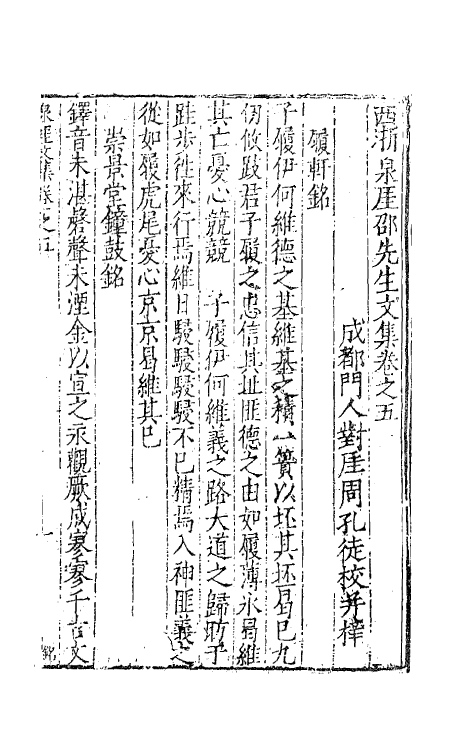 西浙泉厓邵先生文集卷之五
成都門人對厓周孔徒校并梓
履軒銘
子履伊何維德之基維基之積一簣以坯其坯曷已九
仞攸跂君子履之忠信其址匪德之由如履薄氷曷維
其亡憂心兢兢　子履伊何維義之路大道之歸昉于
跬步徃來行焉維日駸駸駸駸不已精焉入神匪義之
從如履虎尾憂心京京曷維其已
崇景堂鐘鼓銘
鐸音未湛磬聲未煙金以宣之永觀厥成寥寥千古文
泉厓文集卷之五
一
銘